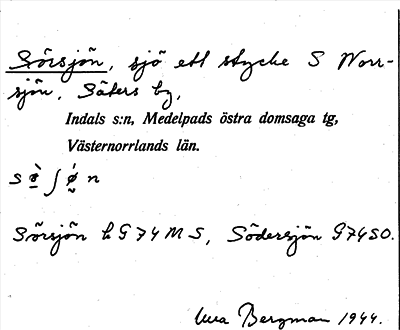 Sörsjön, sjö ett stycke S Norr-
sjön, Säters by,
Indals s:n, Medelpads östra domsaga tg,
Västernorrlands län.
Sörsjön h G 74 M S, Södersjön G 74 SO.
Bergman 1944.